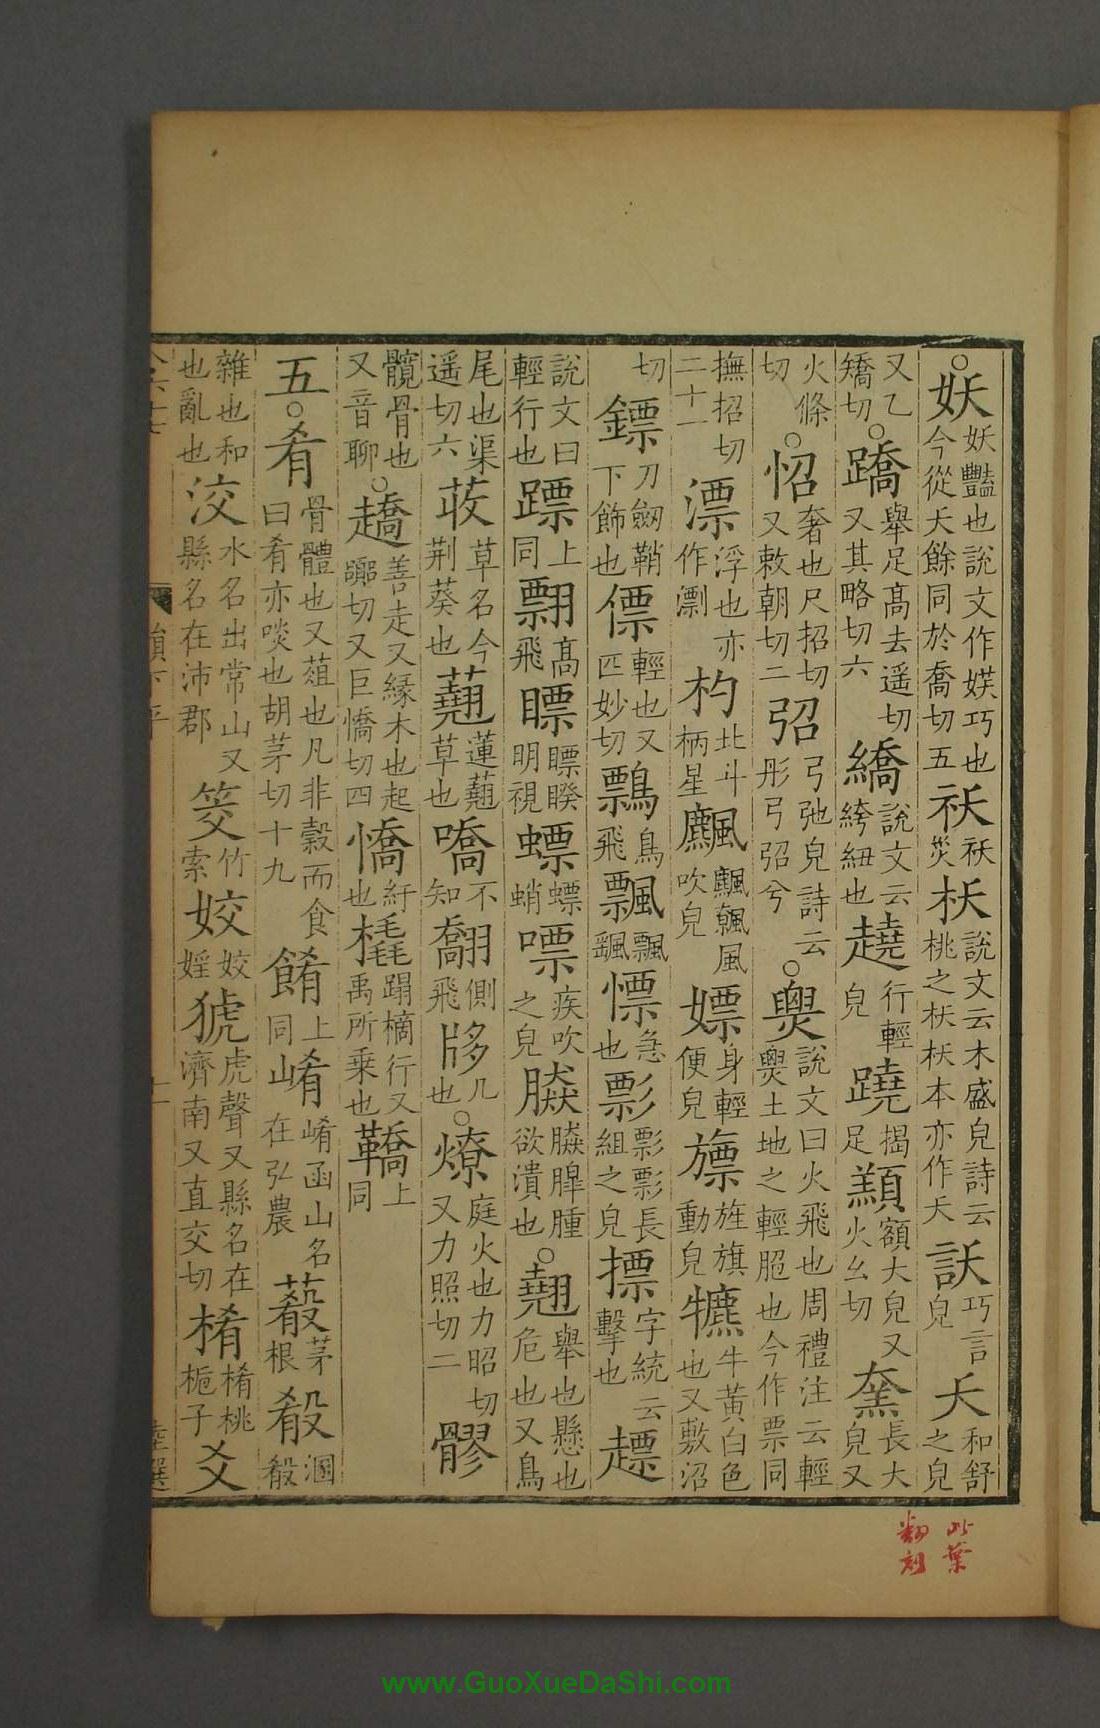 ○妖妖豔也說文作媄巧也今從夭餘同於喬切五祅祅災枖說文云木盛皃詩云桃之枖枖本亦作夭訞巧言皃夭和舒之皃
又乙矯切○蹻舉足高去遥切又其略切六繑說文云絝紐也趬行輕皃蹺揭足顤額大皃又火幺切𡙡長大皃又
火條切○怊奢也尺招切又敕朝切二弨弓弛皃詩云彤弓弨兮○㷼說文曰火飛也周禮注云輕㷼土地之輕脃也今作票同
撫招切二十一漂浮也亦作㵱杓北斗柄星飍吹皃嫖身輕便皃旚旌旗動皃犥牛黃白色也又敷沼
切鏢刀劒鞘下飾也僄輕也又匹妙切鷅鳥飛飄飄颻慓急也彯彯彯長組之皃摽字統云擊也𧽤
說文曰輕行也蹘上同翲高飛瞟瞟睽明視螵螵蛸嘌疾吹之皃膘膘膟腫欲潰也○翹舉也懸也危也又鳥
尾也渠遥切六荍草名今荆葵也藮蓮藮草也嘺不知翿側飛𣂁几也○燎庭火也力昭切又力照切二髎
髖骨也又音聊○趫善走又緣木也起嚻切又巨憍切四憍紆也橇蹋樀行又禹所乗也鞽上同
五○肴骨體也又葅也凡非穀而食曰肴亦啖也胡茅切十九餚上同崤崤函山名在弘農䕧茅根殽溷殽
雜也和也亂也洨水名出常山又縣名在沛郡筊竹索姣姣婬猇虎聲又縣名在濟南又直交切㮁㮁桃梔子爻
此葉
翻刻
www.GuoXueDaShi.com